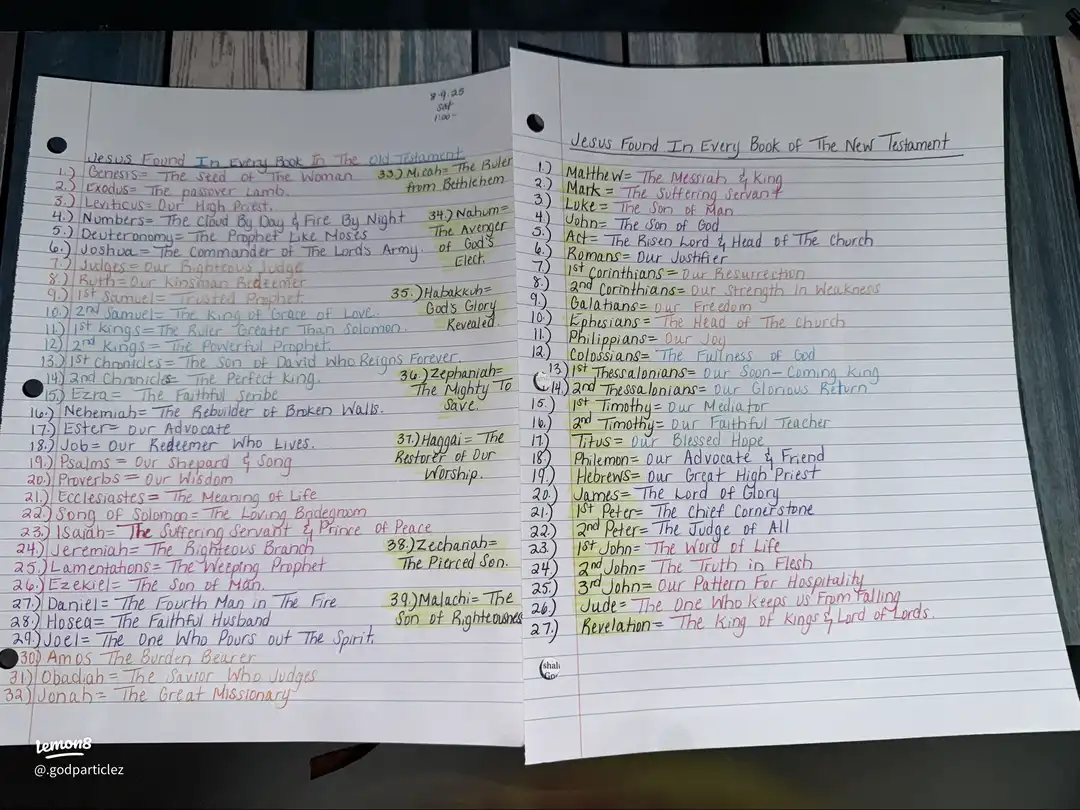 8-9-25
Sat
1:00-
Jesus Found In Every Book In The Old Testament
1.) Genesis= The Seed of The Woman
2.) Exodus= The passover Lamb.
3.) Leviticus= Our High Priest.
4.) Numbers= The Cloud By Day & Fire By Night
5.) Deuteronomy= The Prophet Like Moses
6.) Joshua= The Commander of The Lord's Army.
7.) Judges= Our Righteous Judge
8.) Ruth= Our Kinsman Redeemer
9.) 1st Samuel= Trusted Prophet
10.) 2nd Samuel= The King of Grace of Love.
11.) 1st Kings= The Ruler Greater Than Solomon.
12.) 2nd Kings= The Powerful Prophet.
13.) 1st Chronicles= The Son of David Who Reigns Forever.
14.) 2nd Chronicles= The Perfect King.
15.) Ezra= The Faithful Scribe
16.) Nehemiah= The Rebuilder of Broken Walls.
17.) Ester= Our Advocate
18.) Job= Our Redeemer Who Lives.
19.) Psalms= Our Shepard & Song
20.) Proverbs= Our Wisdom
21.) Ecclesiastes= The Meaning of Life
22.) Song of Solomon= The Loving Bridegroom
23.) Isaiah= The Suffering Servant & Prince of Peace
24.) Jeremiah= The Righteous Branch
25.) Lamentations= The Weeping Prophet
26.) Ezekiel= The Son of Man.
27.) Daniel= The Fourth Man in The Fire
28.) Hosea= The Faithful Husband
29.) Joel= The One Who Pours out The Spirit.
30.) Amos The Burden Bearer
31.) Obadiah= The Savior Who Judges
32.) Jonah= The Great Missionary
33.) Micah= The Ruler
from Bethlehem
34.) Nahum=
The Avenger
of God's
Elect.
35.) Habakkuh=
God's Glory
Revealed.
36.) Zephaniah=
The Mighty To
Save.
37.) Haggai= The
Restorer of Our
Worship.
38.) Zechariah=
The Pierced Son.
39.) Malachi= The
Son of Righteousness
Jesus Found In Every Book of The New Testament
1.) Matthew= The Messiah & King
2.) Mark= The Suffering Servant
3.) Luke= The Son of Man
4.) John= The Son of God
5.) Act= The Risen Lord & Head of The Church
6.) Romans= Our Justifier
7.) 1st Corinthians= Our Resurrection
8.) 2nd Corinthians= Our Strength In Weakness
9.) Galatians= Our Freedom
10.) Ephesians= The Head of The Church
11.) Philippians= Our Joy
12.) Colossians= The Fullness of God
13.) 1st Thessalonians= Our Soon-Coming King
14.) 2nd Thessalonians= Our Glorious Return
15.) 1st Timothy= Our Mediator
16.) 2nd Timothy= Our Faithful Teacher
17.) Titus= Our Blessed Hope
18.) Philemon= Our Advocate & Friend
19.) Hebrews= Our Great High Priest
20.) James= The Lord of Glory
21.) 1st Peter= The Chief Cornerstone
22.) 2nd Peter= The Judge of All
23.) 1st John= The Word of Life
24.) 2nd John= The Truth in Flesh
25.) 3rd John= Our Pattern For Hospitality
26.) Jude= The One Who keeps us From falling
27.) Revelation= The King of Kings & Lord of Lords.
shall
lemon8
@.godparticlez